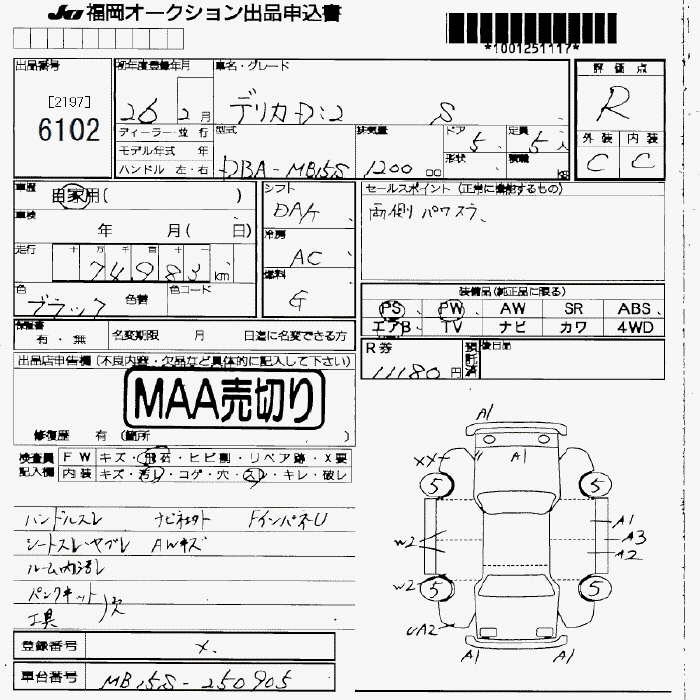 JU 福岡オークション出品申込書
*1001251117*
出品番号
[2197]
6102
初年度登録年月
26 2月
車名・グレード
デリカD:2 S
評価点
R
外装 内装
C C
ディーラー・並行
モデル年式 年
ハンドル 左・右
型式
DBA-MB15S
排気量
1200 cc
ドア 5
形状
定員 5人
積載 kg
車歴 自家用( )
車検 年 月( 日)
走行 十 万 千 百 十
74983 km
色 ブラック 色替
色コード
シフト
DAT
冷房
AC
燃料
G
セールスポイント(正常に機能するもの)
両側パワスラ、
装備品(純正品に限る)
PS PW AW SR ABS
エアB TV ナビ カワ 4WD
保証書 有・無
名変期限 月 日迄に名変できる方
R券
11180円
預託済
後日品
出品店申告欄(不良内容・欠品など具体的に記入して下さい)
MAA売切り
修復歴 有(箇所 )
検査員 FW キズ・飛石・ヒビ割・リペア跡・X要
記入欄 内装 キズ・汚レ・コゲ・穴・スレ・キレ・破レ
ハンドルスレ ナビネット FインパネU
シートスレ・ヤブレ AWキズ
ルーム内汚レ
パンクキット
工具 )欠
登録番号 ×.
車台番号 MB15S-250905
A1
A1
XX
5 5
W2 A1
A3
A2
W2
5 5
UA2
A1 A1